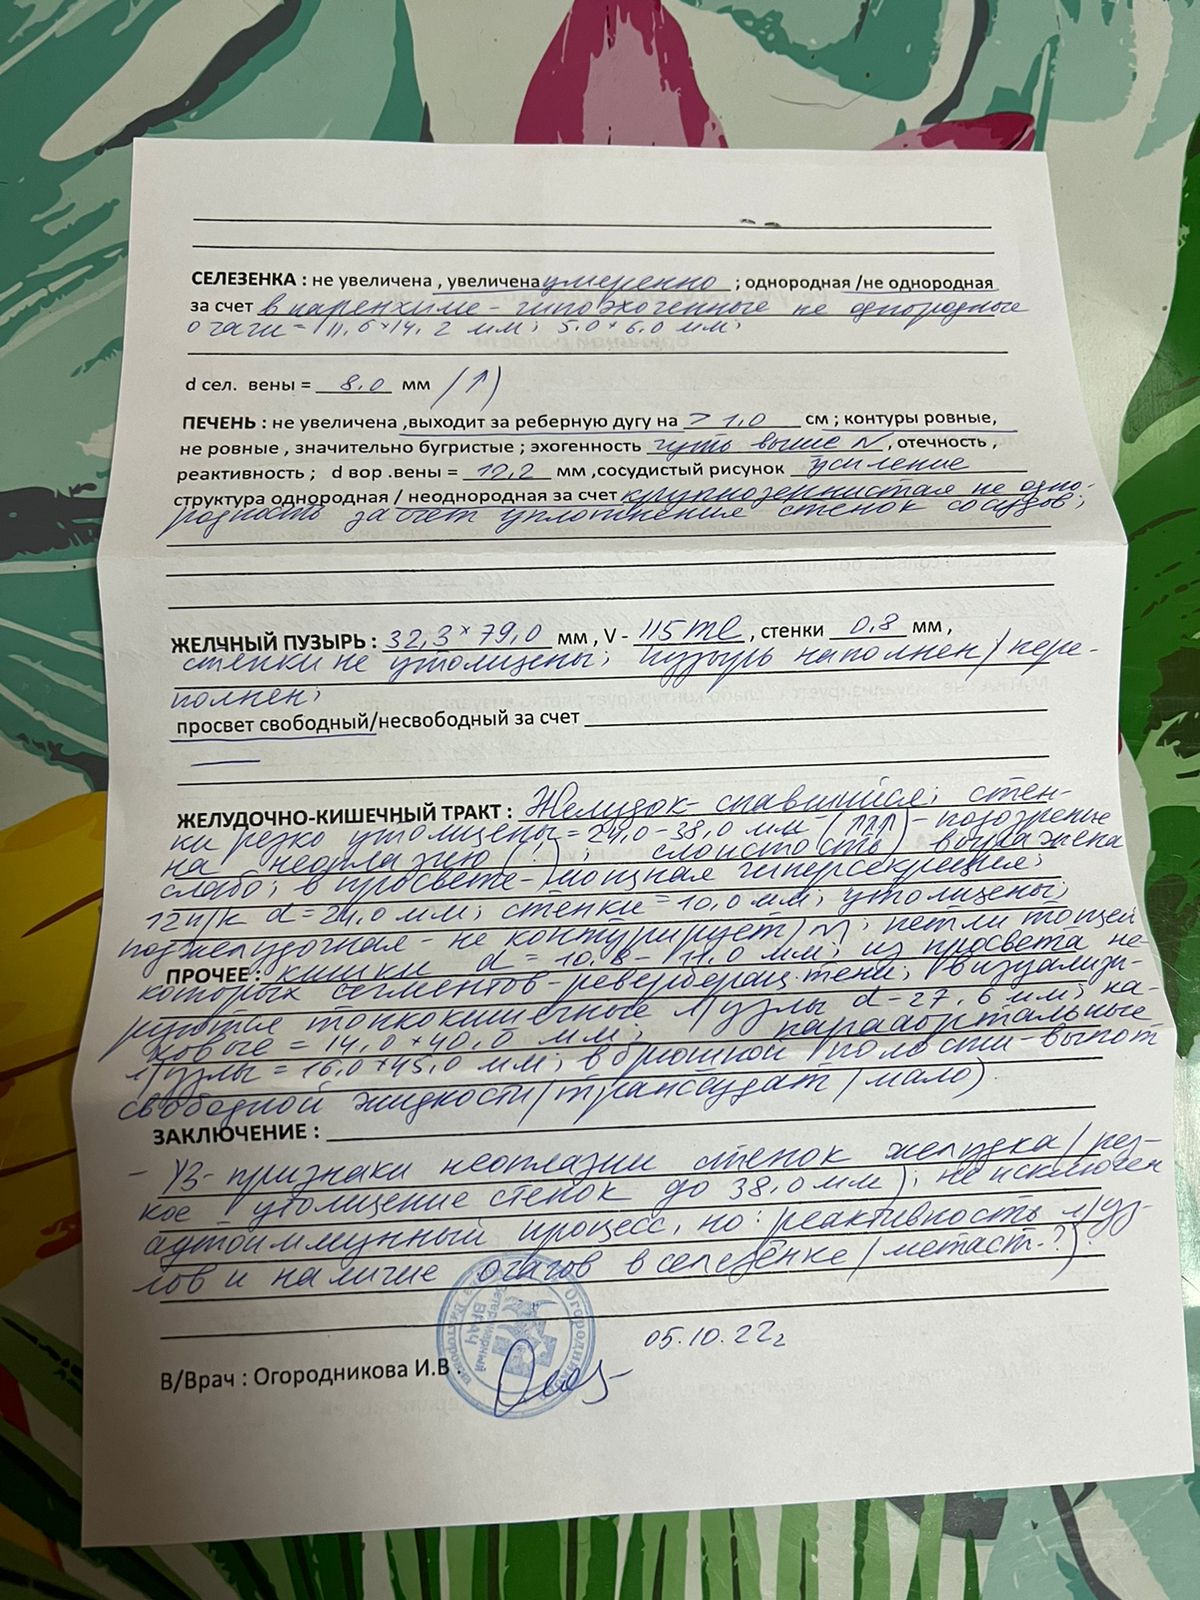 СЕЛЕЗЕНКА : не увеличена , увеличена умеренно ; однородная /не однородная
за счет в паренхиме - гипоэхогенные не однородные
очаги = 11,6×14,2 мм; 5,0×6,0 мм;
d сел. вены = 8,0 мм (↑)
ПЕЧЕНЬ : не увеличена ,выходит за реберную дугу на > 1,0 см ; контуры ровные,
не ровные , значительно бугристые ; эхогенность чуть выше N , отечность ,
реактивность ; d вор .вены = 10,2 мм ,сосудистый рисунок усиление
структура однородная / неоднородная за счет крупнозернистая не одно-
родность за счет уплотнения стенок сосудов;
ЖЕЛЧНЫЙ ПУЗЫРЬ : 32,3×79,0 мм , V - 115 ml , стенки 0,8 мм ,
стенки не утолщены; пузырь наполнен/пере-
полнен;
просвет свободный/несвободный за счет
ЖЕЛУДОЧНО-КИШЕЧНЫЙ ТРАКТ : Желудок - спавшийся; стен-
ки резко утолщены = 24,0-38,0 мм (↑↑↑) - подозрение
на неоплазию (?); слоистость выражена
слабо; в просвете - мощная гиперсекреция;
12п/к d = 24,0 мм; стенки = 10,0 мм; утолщены;
поджелудочная - не контурирует/N; петли тощей
ПРОЧЕЕ : кишки d = 10,8- 11,0 мм; из просвета не-
которых сегментов - ревербератц. тени; визуализи-
руются тонкокишечные л/узлы d - 27,6 мм; па-
ховые = 14,0×40,0 мм; парааортальные
л/узлы = 16,0×45,0 мм; в брюшной полости - выпот
свободной жидкости/транссудат/мало).
ЗАКЛЮЧЕНИЕ :
- УЗ- признаки неоплазии стенок желудка/рез-
кое утолщение стенок до 38,0 мм); не исключен
аутоиммунный процесс, но: реактивность л/уз-
лов и наличие очагов в селезёнке/метаст.?).
05.10.22г
В/Врач : Огородникова И.В .
ВРАЧ